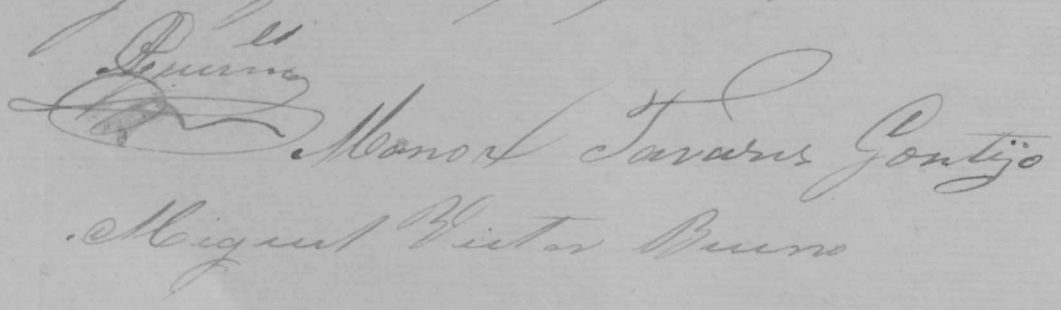 Manoel Tavares Gontijo
Miguel Victor Bueno